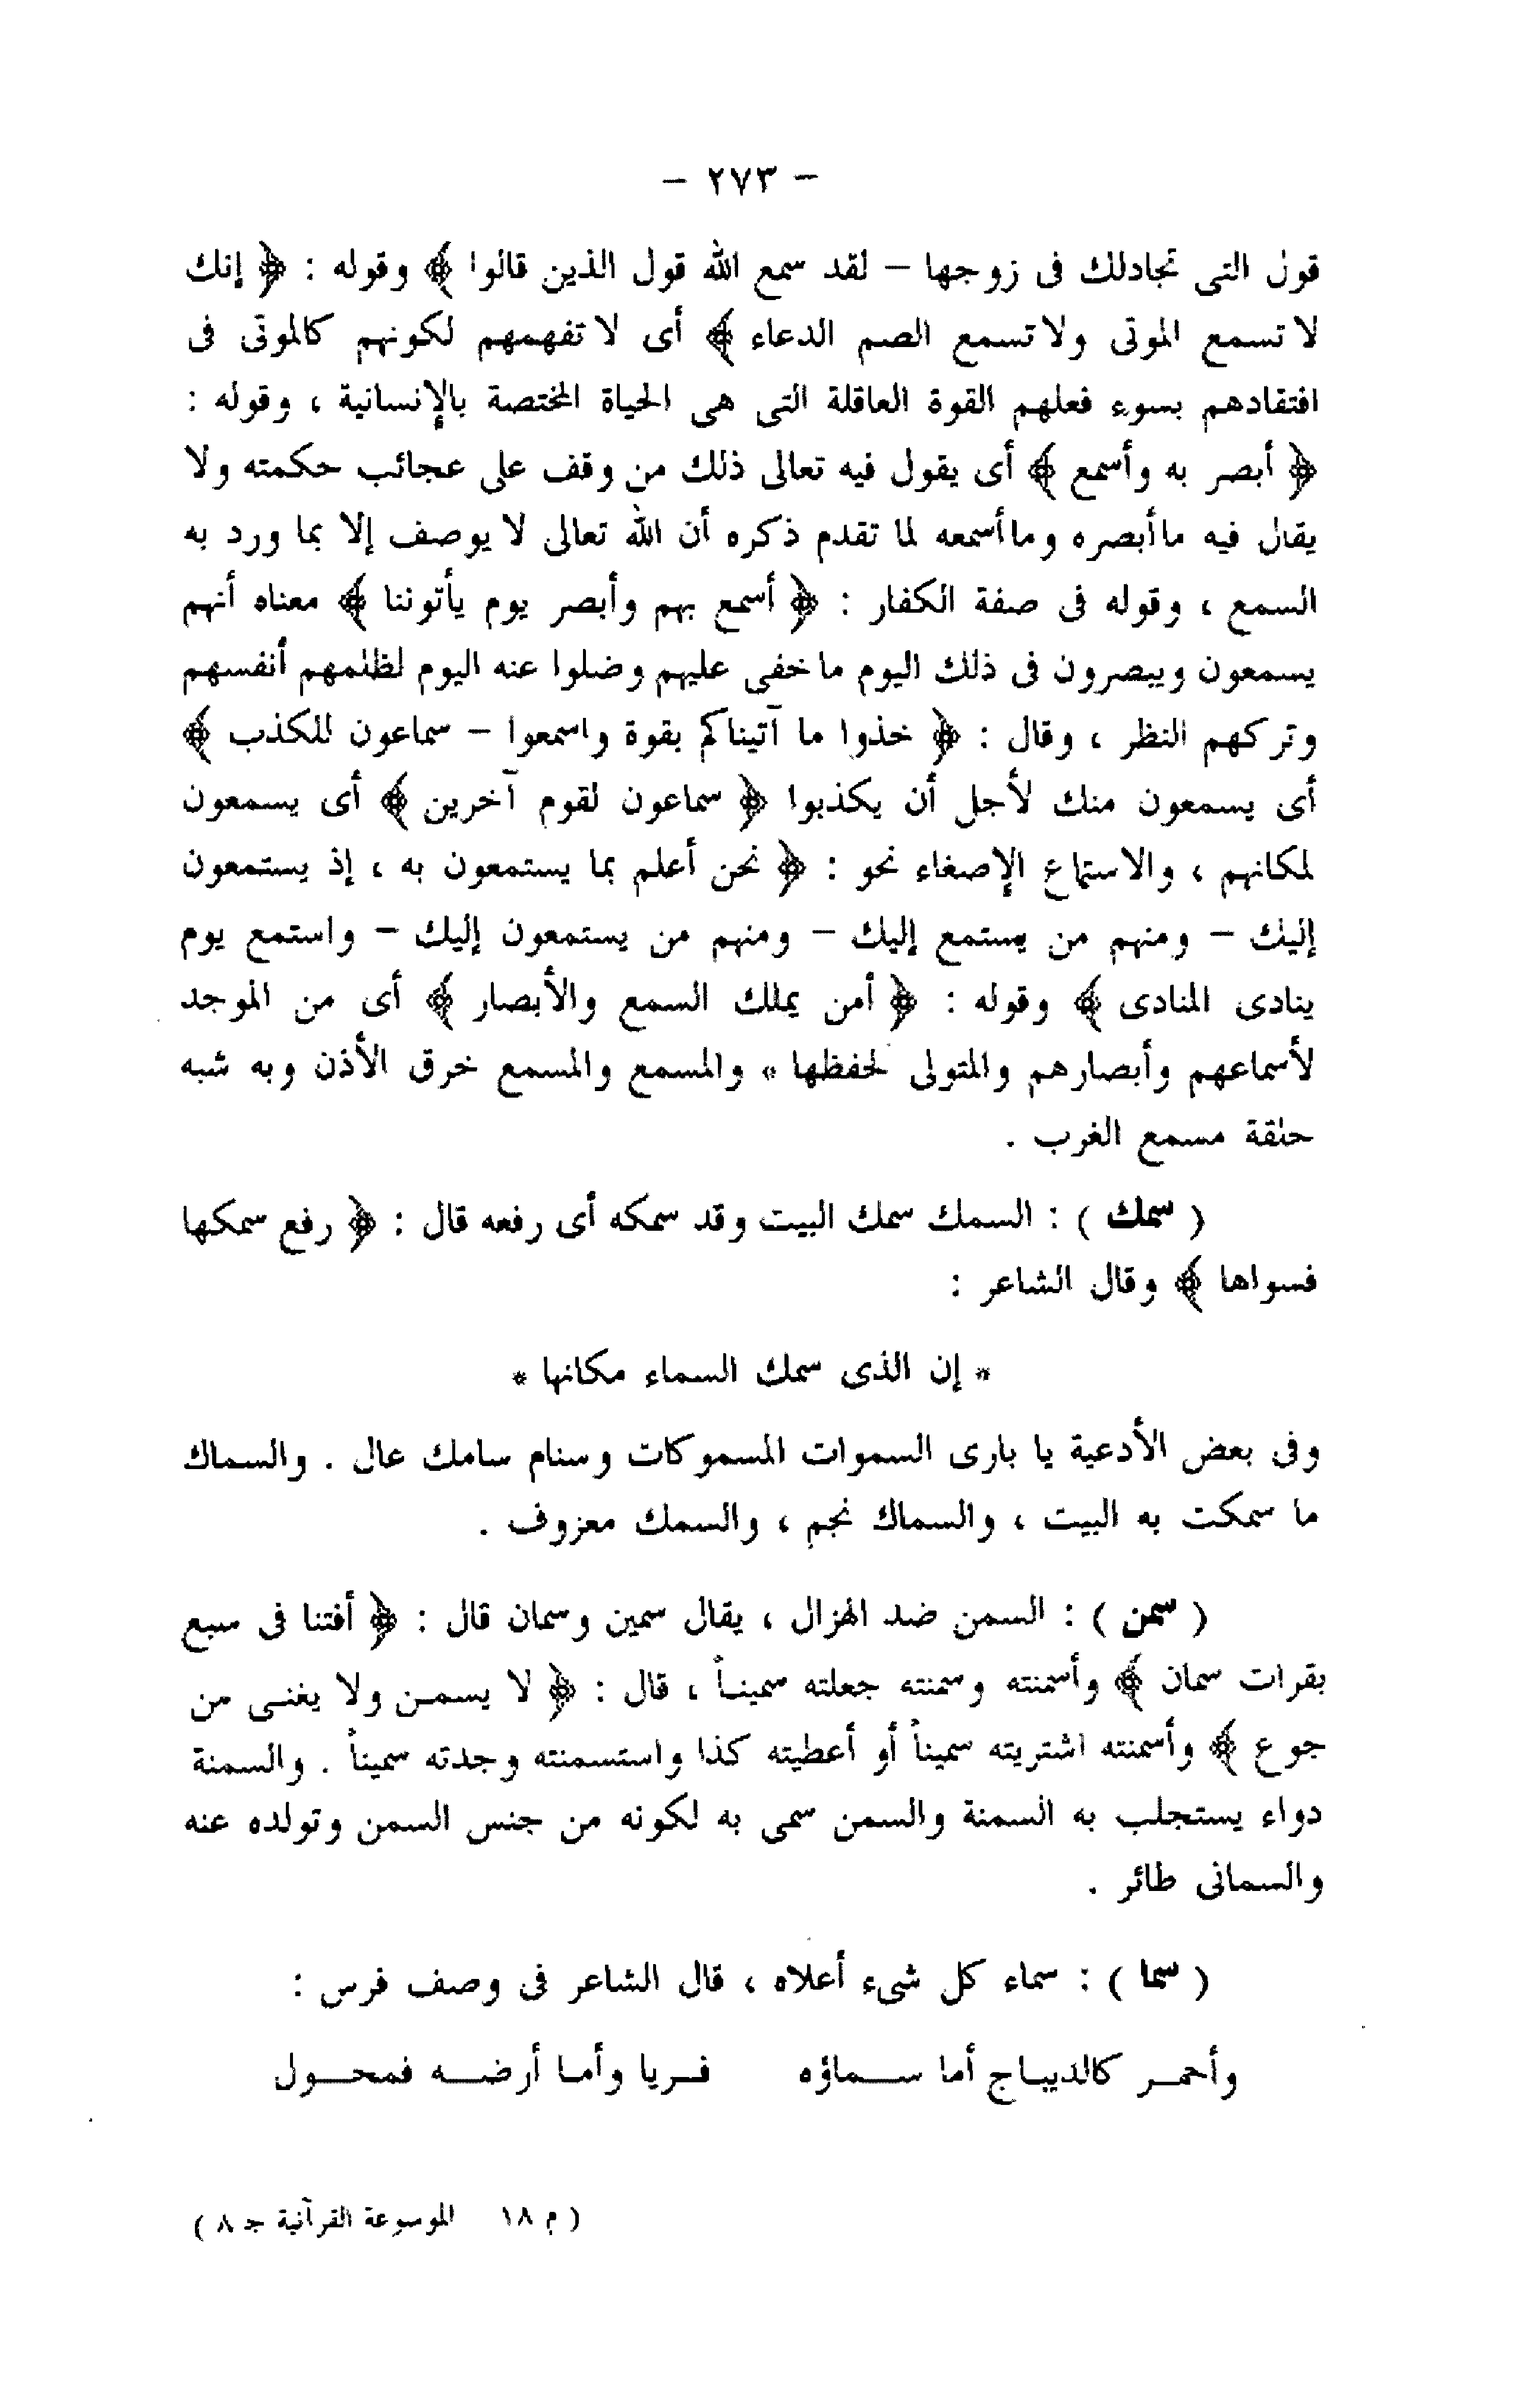 - ٢٧٣ -
قول التى تجادلك فى زوجها - لقد سمع الله قول الذين قالوا ﴾ وقوله : ﴿ إنك
لا تسمع الموتى ولا تسمع الصم الدعاء ﴾ أى لا تفهمهم لكونهم كالموتى فى
افتقادهم بسوء فعلهم القوة العاقلة التى هى الحياة المختصة بالإنسانية ، وقوله :
﴿ أبصر به وأسمع ﴾ أى يقول فيه تعالى ذلك من وقف على عجائب حكمته ولا
يقال فيه ما أبصره وما أسمعه لما تقدم ذكره أن الله تعالى لا يوصف إلا بما ورد به
السمع ، وقوله فى صفة الكفار : ﴿ أسمع بهم وأبصر يوم يأتوننا ﴾ معناه أنهم
يسمعون ويبصرون فى ذلك اليوم ما خفى عليهم وضلوا عنه اليوم لظلمهم أنفسهم
وتركهم النظر ، وقال : ﴿ خذوا ما آتيناكم بقوة واسمعوا - سماعون للكذب ﴾
أى يسمعون منك لأجل أن يكذبوا ﴿ سماعون لقوم آخرين ﴾ أى يسمعون
لمكانهم ، والاستماع الإصغاء نحو : ﴿ نحن أعلم بما يستمعون به ، إذ يستمعون
إليك - ومنهم من يستمع إليك - ومنهم من يستمعون إليك - واستمع يوم
ينادى المنادى ﴾ وقوله : ﴿ أمن يملك السمع والأبصار ﴾ أى من الموجد
لأسماعهم وأبصارهم والمتولى لحفظها « والمسمع والمسمع خرق الأذن وبه شبه
حلقة مسمع الغرب .
( سمك ) : السمك سمك البيت وقد سمكه أى رفعه قال : ﴿ رفع سمكها
فسواها ﴾ وقال الشاعر :
* إن الذى سمك السماء مكانها *
وفى بعض الأدعية يا بارى السموات المسموكات وسنام سامك عال . والسماك
ما سمكت به البيت ، والسماك نجم ، والسمك معزوف .
( سمن ) : السمن ضد الهزال ، يقال سمين وسمان قال : ﴿ أفتنا فى سبع
بقرات سمان ﴾ وأسمنته وسمنته جعلته سميناً ، قال : ﴿ لا يسمن ولا يغنى من
جوع ﴾ وأسمنته اشتريته سميناً أو أعطيته كذا واستسمنته وجدته سميناً . والسمنة
دواء يستجلب به السمنة والسمن سمى به لكونه من جنس السمن وتولده عنه
والسمانى طائر .
( سما ) : سماء كل شىء أعلاه ، قال الشاعر فى وصف فرس :
وأحمر كالديباج أما سماؤه فريا وأما أرضه فمحول
( م ١٨ الموسوعة القرآنية جـ ٨ )